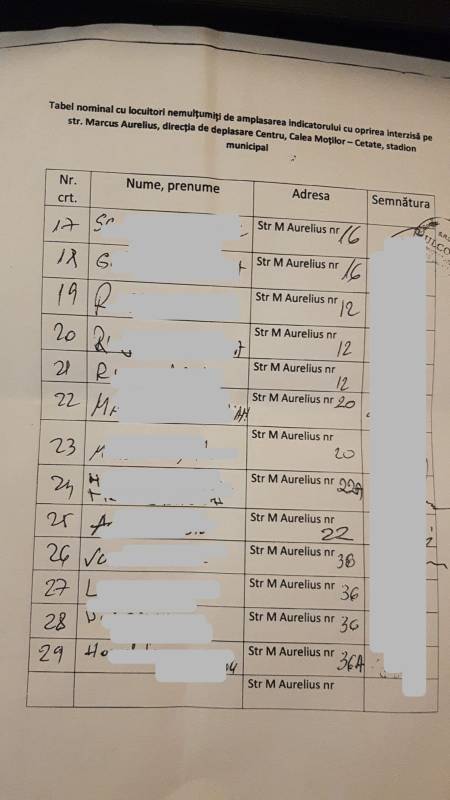 Tabel nominal cu locuitori nemulțumiți de amplasarea indicatorului cu oprirea interzisă pe
str. Marcus Aurelius, direcția de deplasare Centru, Calea Moților – Cetate, stadion
municipal
Nr. crt. Nume, prenume Adresa Semnătura
17 Str M Aurelius nr 16
18 Str M Aurelius nr 16
19 R Str M Aurelius nr 12
20 Str M Aurelius nr 12
21 R Str M Aurelius nr 12
22 Str M Aurelius nr 20
23 Str M Aurelius nr 20
24 Str M Aurelius nr
25 Str M Aurelius nr 22
26 Str M Aurelius nr
27 L Str M Aurelius nr 36
28 Str M Aurelius nr 36
29 Ho Str M Aurelius nr 36A
Str M Aurelius nr